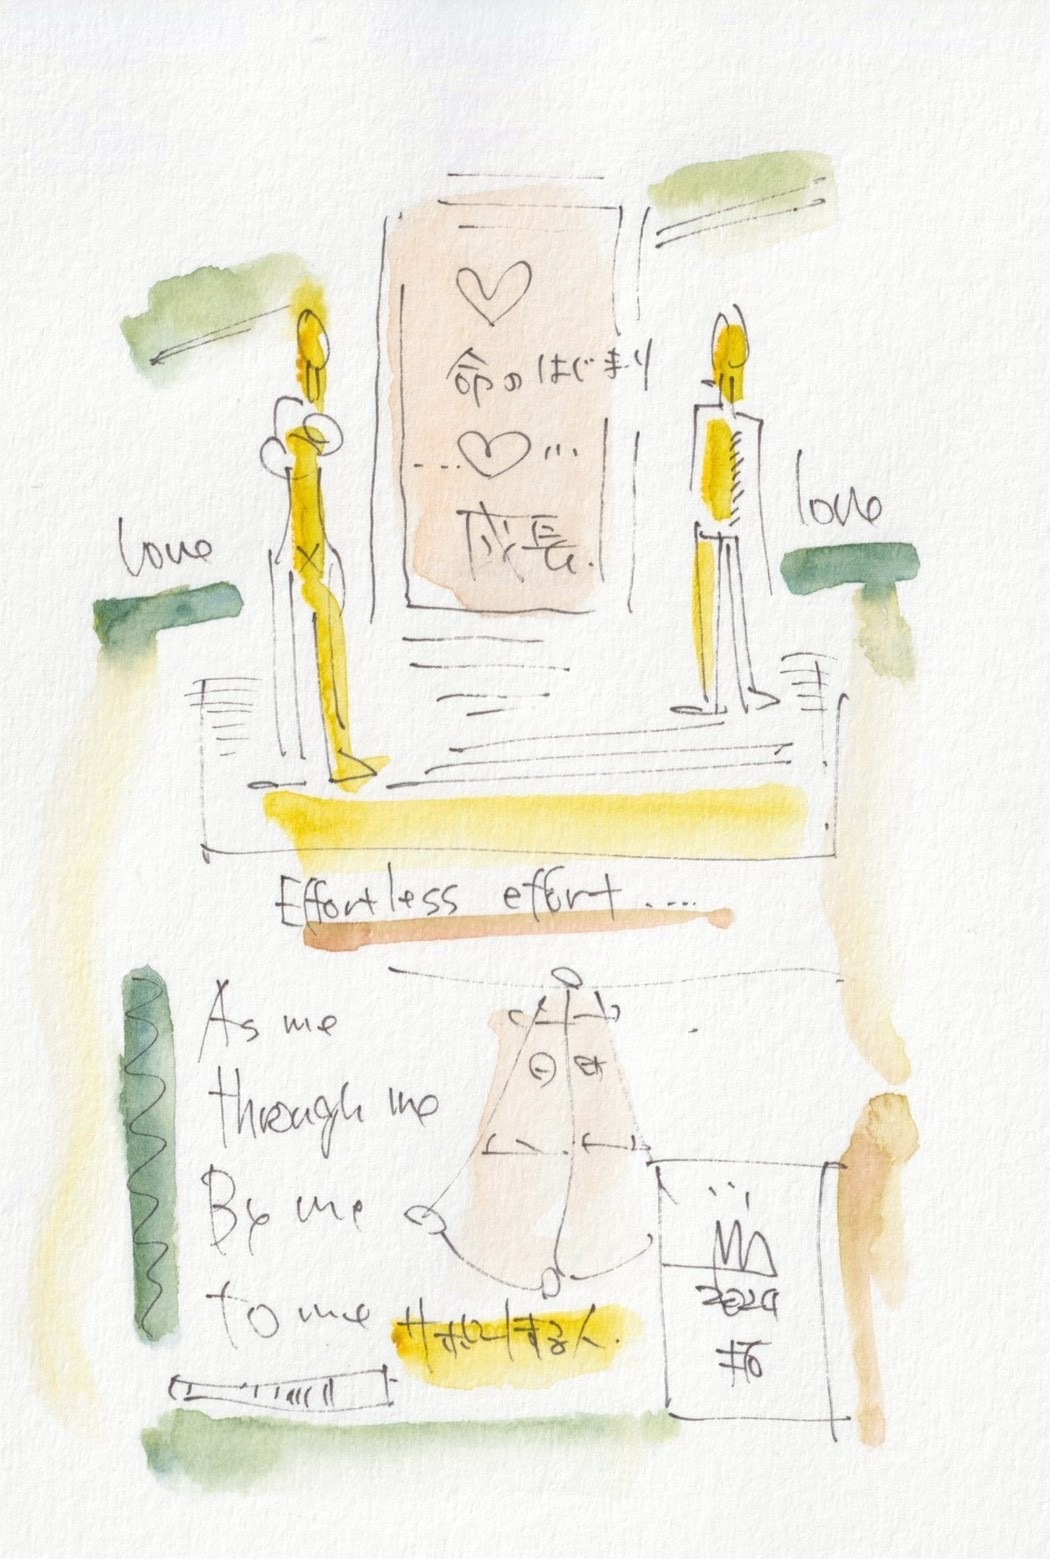 ♡
命のはじまり
...♡...
成長.
love
love
Effortless effort.....
As me
through me
By me
to me
サポートする人.
2024
拓